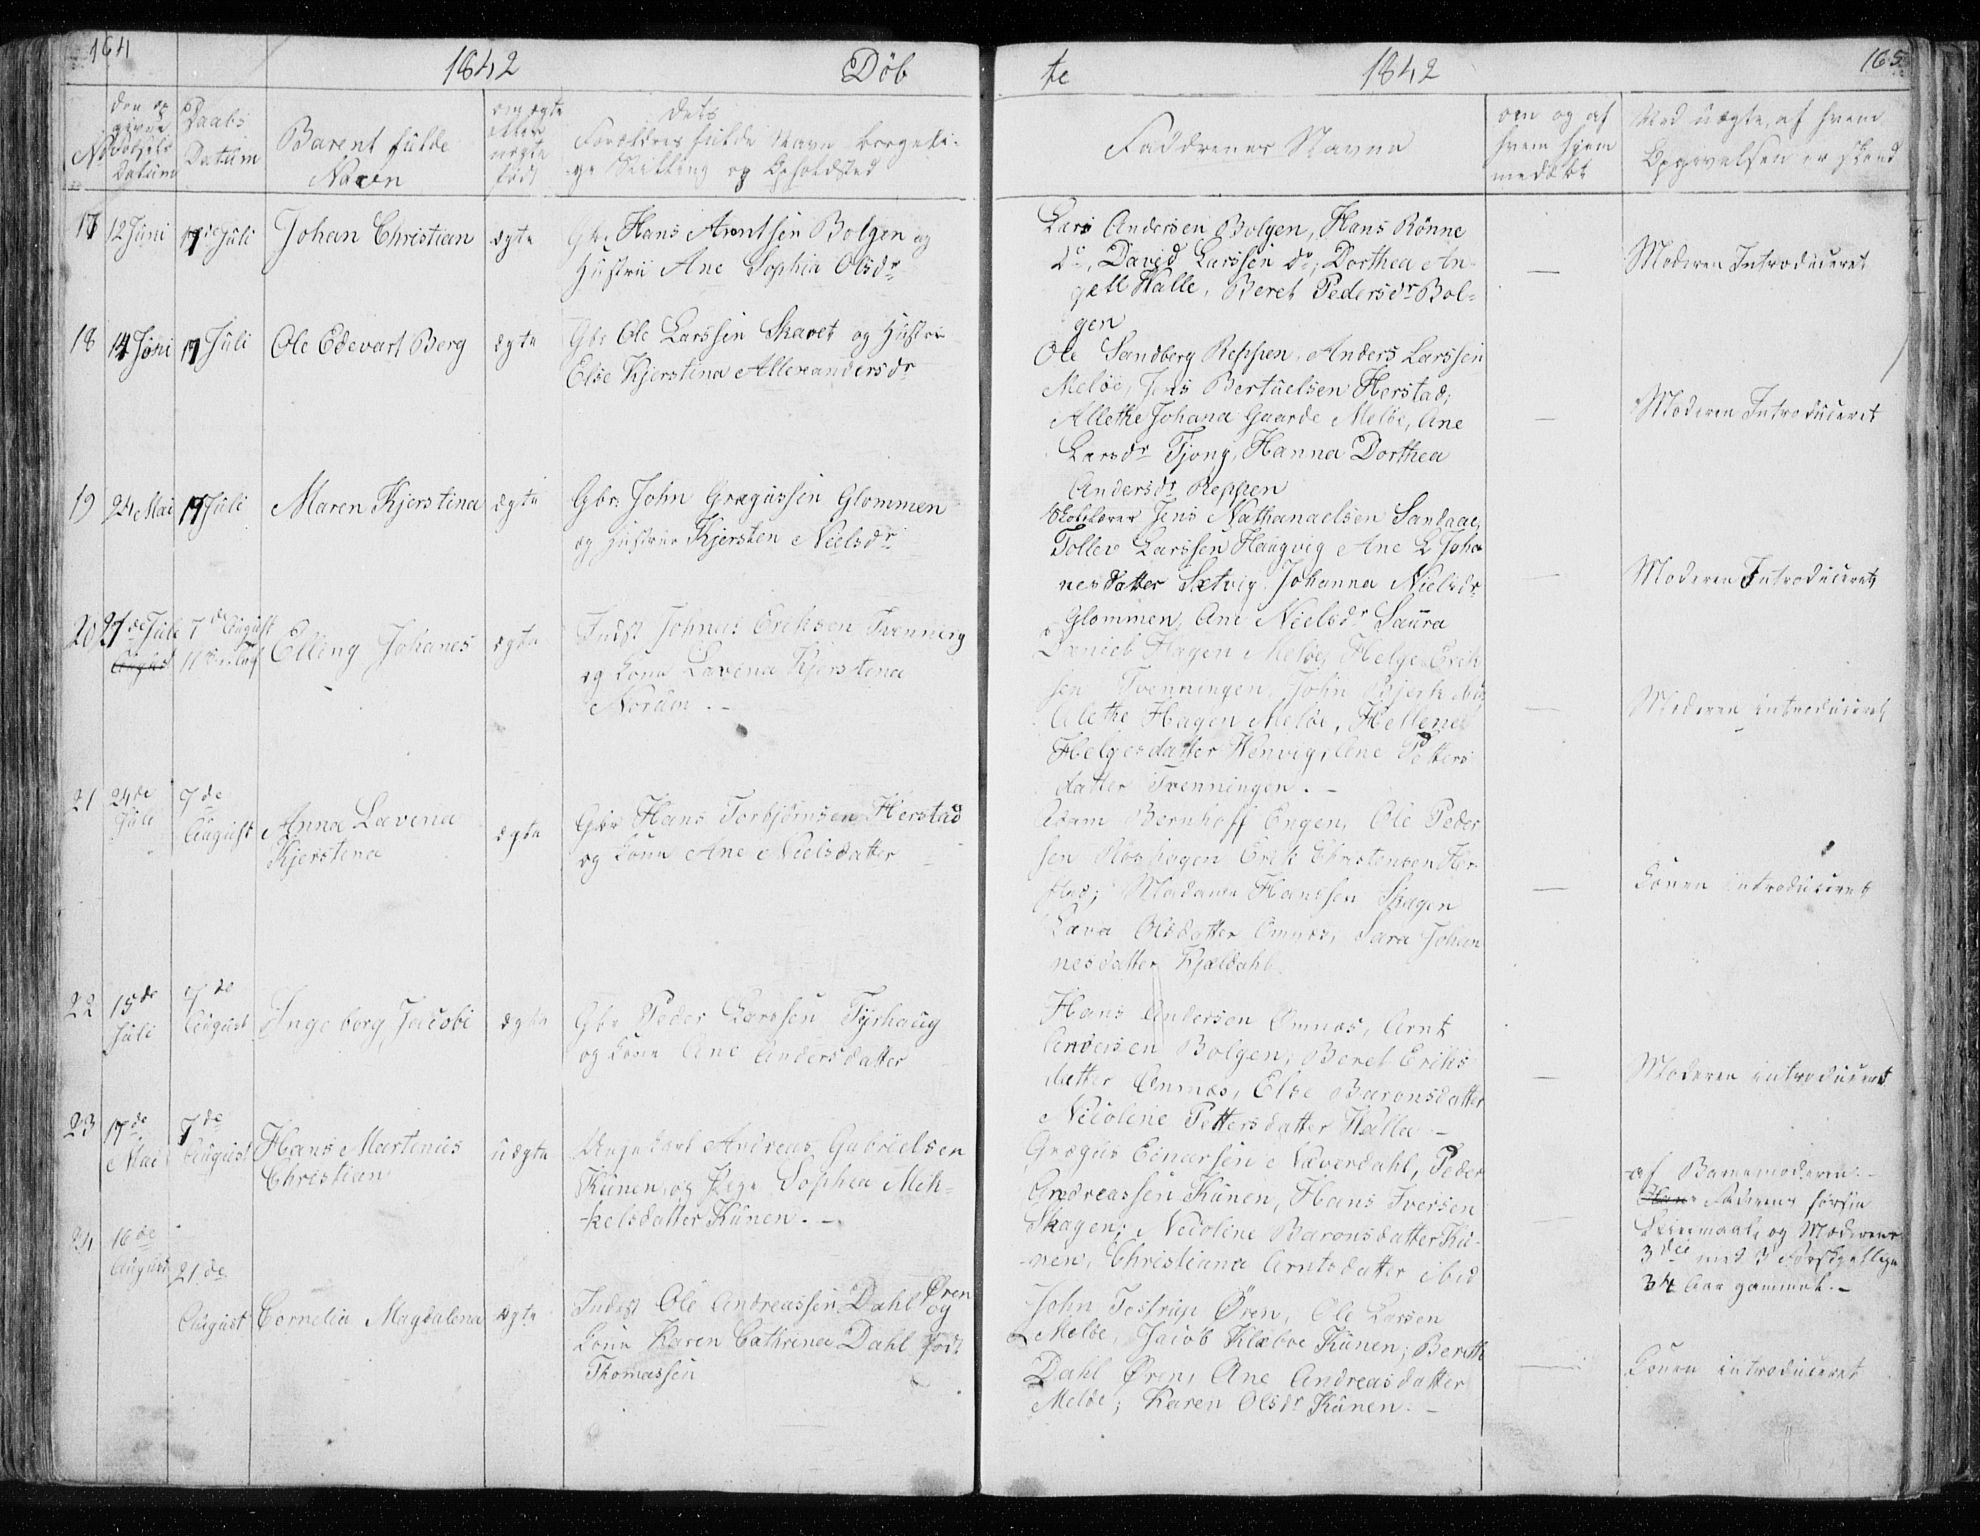 164
1842
Døb
te
1842
165
No
den opgivne Fødsels Datum
Daabs Datum
Barent fulde
Navn
om ægte
eller
uægte
født
dets
Forældres fulde Navn borgeli-
ge Stilling og Opholdsted
Faddrenes Navne
om og af
hvem hjem
medøbt
Ved uægte, af hvem
Opgivelsen er skeed
17 12 Juni 17de Juli Johan Christian ægte Gbr. Hans Arntsen Bolgen og
Hustrü Ane Sophia Olsdr
Lars Andersen Bolgen, Hans Rönne
do, David Larssen do, Dorthea An-
gell Halle, Beret Pedersdr Bol-
gen
Moderen Introduceret
18 14 Juni 17 Juli Ole Edevart Berg ægte Gbr Ole Larssen Skavet og Hustru
Else Kjerstina Allexandersdr
Ole Sandberg Reppen, Anders Larssen
Meløe, Jens Bertuelsen Herstad;
Allethe Johana Gaarde Meløe, Ane
Larsdr Tjong, Hanna Dorthea
Andersdr Reppen
Moderen Introduceret
19 24 Mai 17 Juli Maren Kjerstina ægte Gbr: John Grægussen Glommen
og Hustrue Kjersten Nielsdr
Skolelærer Jens Nathanaelsen Sandaae,
Tollev Larssen Haugvig Ane L Joha
nesdatter Sætvig, Johanna Nielsdr
Glommen, Ane Nielsdr Saura
Moderen Introduceret
20 27de Juli 7de August Elling Johanes ægte Indst Johnas Eriksen Tvenning
og Kone Lavina Kjerstina
Norum. -
Daniel Hagen Meløe, Helge Erik
sen Tvenningen, John
Alethe Hagen Meløe, Hellene
Helgesdatter Wenvig, Ane Petters
datter Tvenningen. -
Moderen introduceret
21 24de
Juli
7de
August
Anna Lavina
Kjerstina
ægte
Gbr Hans Torbjørnsen Herstad
og Kone Ane Nielsdatter
Adam Bernhoff Engen, Ole Peder
sen Erik Christensen Her-
stad; Madame Hanssen Skagen
Lava Olsdatter Ømnes, Sara Johan
nesdatter Kjeldahl
Konen introduceret
22 15de
Juli
7de
August
Ingeborg Jacobi ægte
Gbr Peder Larssen Tyrhaug
og Kone Ane Andersdatter
Hans Andersen Ømnes, Arnt
Andersen Bolgen, Beret Eriks
datter Ømnæs, Else Baronsdatter
Nicoline Pettersdatter Halla -
Moderen introduceret
23 17de
Mai
7de
August
Hans Martenus
Christian
uægte
Ungekarl Andreas Gabrielsen
Kunen og Pige Sophia Mik-
kelsdatter Kunen. -
Grægus Einarsen Næverdahl, Peder
Andreassen Kunen, Hans Iversen
Skagen; Nicoline Baronsdatter Ku-
nen, Christiana Arntsdatter ibid
af Barnemoderen. -
Faderens første
Leiermaal, og Moderens
3die med 3 forskjellige
34 Aar gammel. -
24 16de
August
21de
August
Cornelia Magdalena ægte
Indst Ole Andreassen Dahl Øren og
Kone Karen Cathrina Dahl født
Thomassen
John Tostrup Øren, Ole Larsen
Meløe, Jacob Klæboe Kunen; Bereth
Dahl Øren, Ane Andreasdatter
Meløe; Karen Olsdr Kunen. -
Konen introduceret